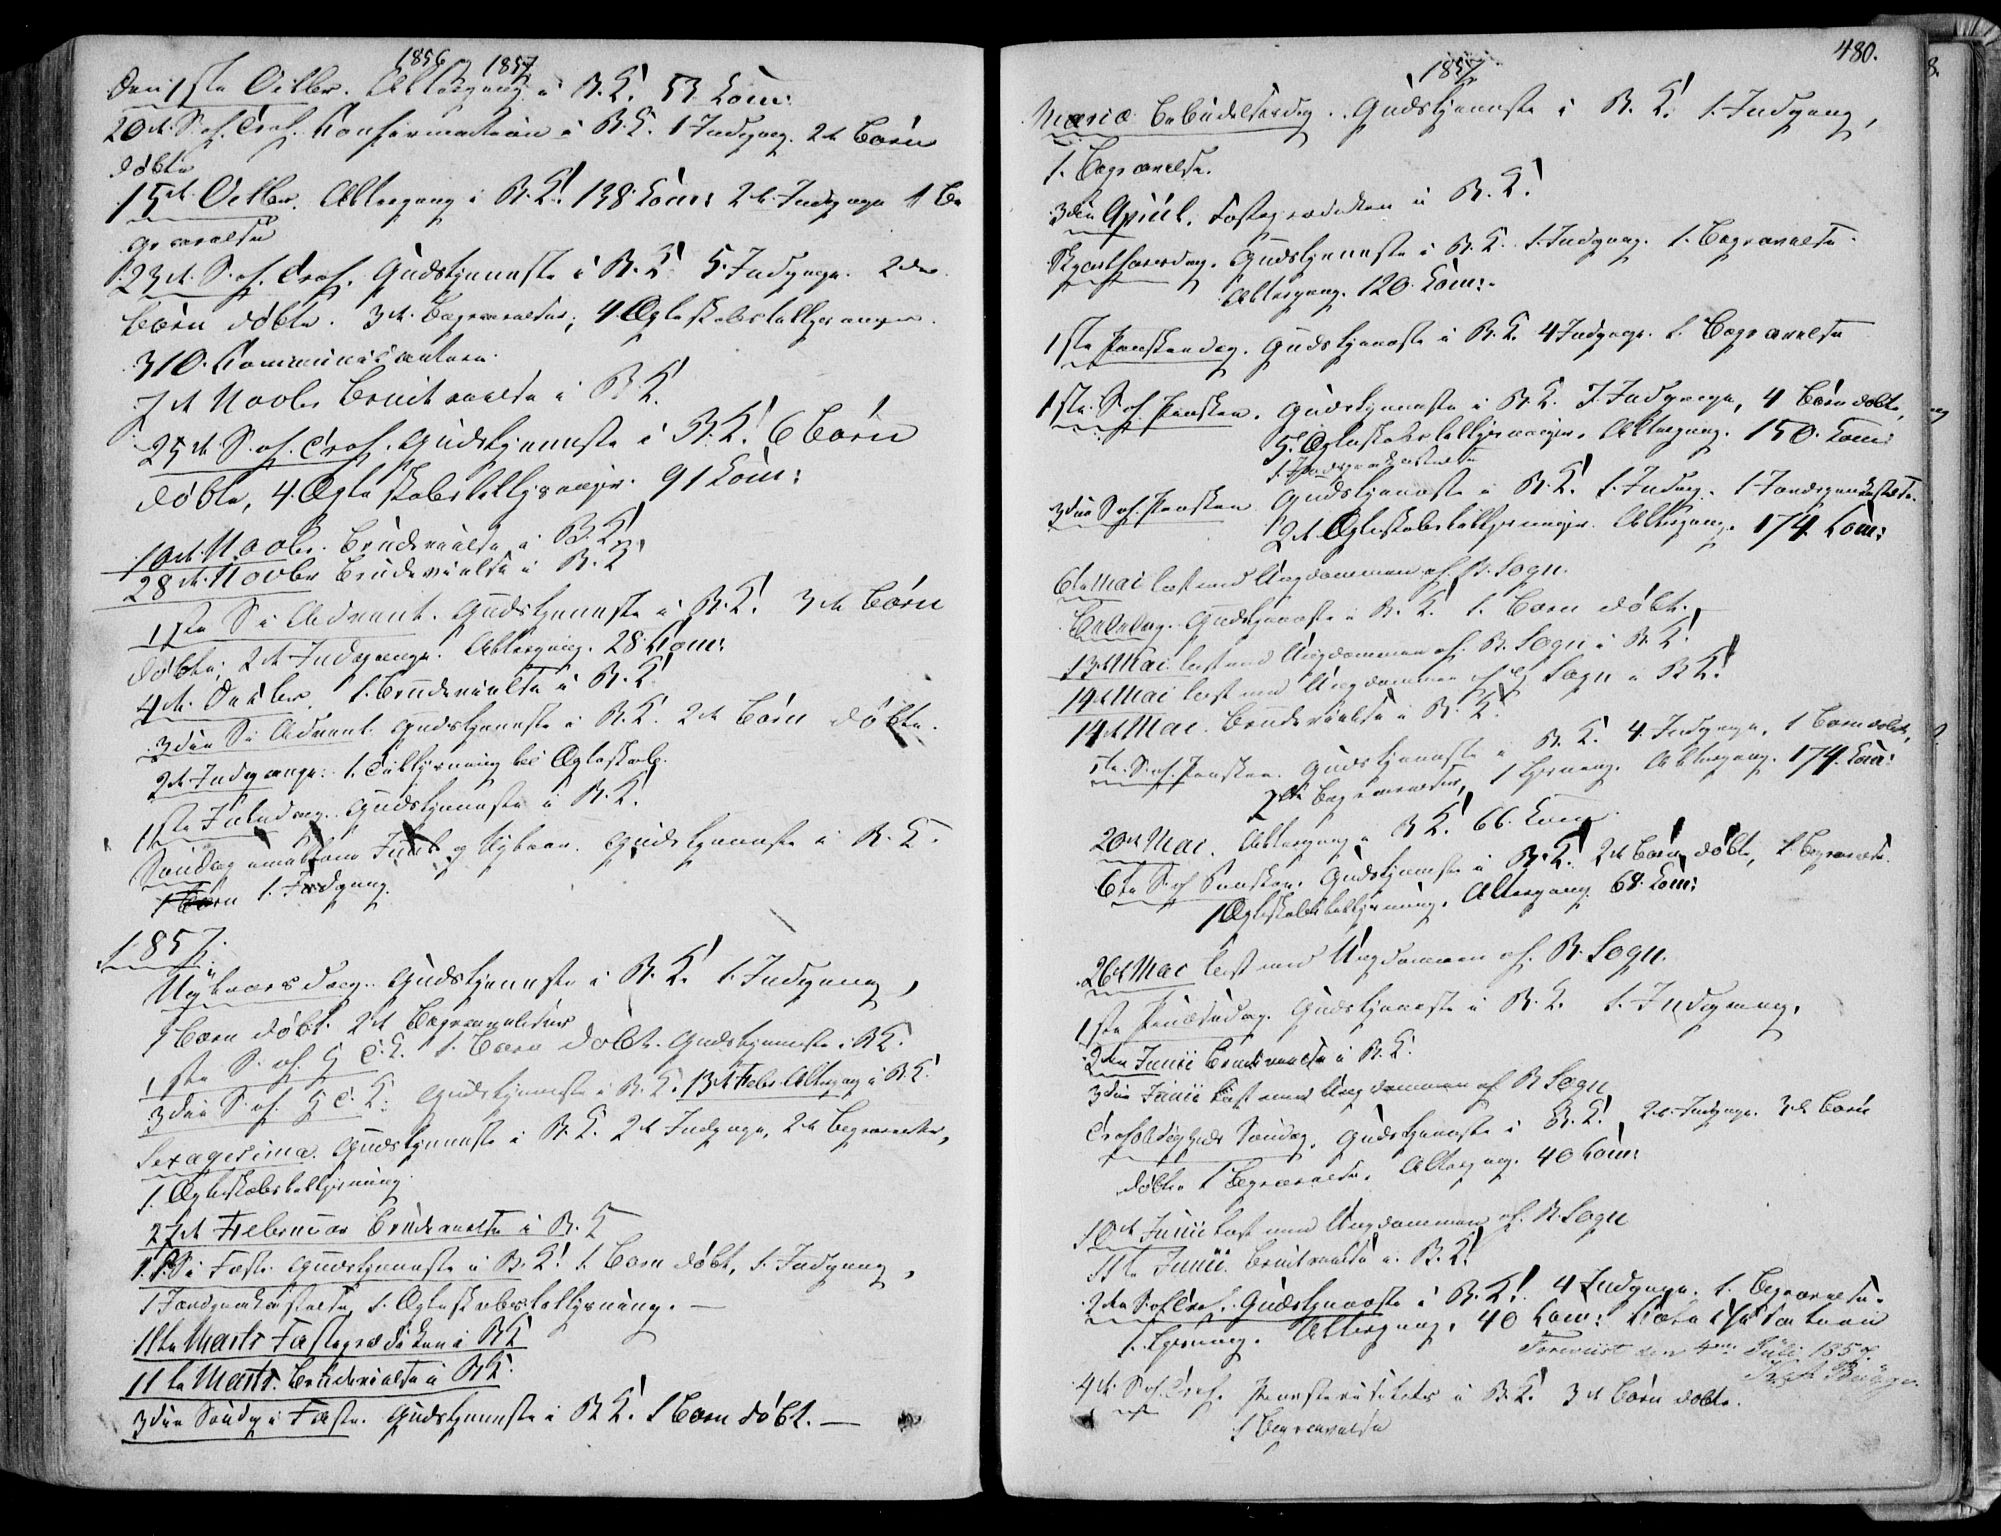 1856 1857
Den 1ste Octbr. Altergang i B. K. 53 Com:
20de S. ef. Tref. Konfirmation i B. K. 1 Indgang. 2de Børn
døbte
15de Octbr. Altergang i B. K. 138 Com: 2de Indgange 1 Be
gravelse
23de S. ef. Tref. Gudstjeneste i B. K. 5 Indgange. 2de
Børn døbte. 3de Begravelser, 4 Ægteskabstillysninger.
310 Kommunicantere.
7de Novbr Brudevielse i B. K.
25de S. ef. Tref. Gudstjeneste i B. K. 6 Børn
døbte, 4. Ægteskabstillysninger. 91 Com:
10de Novbr. Brudevielse i B. K.
28de Novbr Brudevielse i B. K.
1ste S. i Advent. Gudstjeneste i B. K. 3de Børn
døbte, 2de Indgange. Altergang. 28 Kom:
4de Decbr. 1. Brudevielse i B. K.
3die S. i Advent. Gudstjeneste i B. K. 2de Børn døbte.
2de Indgange. 1. Tillysning til Ægteskab.
1ste Juledag. Gudstjeneste i B. K.
Søndag imellem Juul og Nytaar. Gudstjeneste i B. K.
1 Barn 1. Indgang.
1857.
Nytaarsdag. Gudstjeneste i B. K. 1. Indgang,
1 Barn døbt. 2de Begravelser
1ste S. ef. H. 3. K. 1. Barn døbt. Gudstjeneste i B K.
3die S. ef. H. 3. K. Gudstjeneste i B. K. 13de Febr. Altergang i B. K.
Sexagesima. Gudstjeneste i B. K. 2de Indgange, 2de Begravelser,
1. Ægteskabstillysning.
27de Februar Brudevielse i B. K
1. S. i Faste. Gudstjeneste i B. K. 1. Barn døbt, 1. Indgang,
1 Jordpaakastelse, 1. Ægteskabstillysning. —
11te Marts Fasteprædiken i B K
11te Marts. Brudevielse i B K.
3die Søndag i Faste. Gudstjeneste i B K. 1 Barn døbt. —
480.
1857
Mariæ Bebudelsesdag. Gudstjeneste i B. K. 1. Indgang,
1. Begravelse.
3die April. Fasteprædiken i B. K.
Skjærthorsdag. Gudstjeneste i B. K. 1. Indgang. 1. Begravelse.
Altergang. 120. Com:
1ste Paaskedag. Gudstjeneste i B. K. 4 Indgange. 1. Begravelse
1ste S. ef. Paasken. Gudstjeneste i B. K. 7. Indgange, 4 Børn døbte,
5. Ægteskabstillysninger. Altergang. 150. Com:
1. Jordpaakastelse
3die S. ef. Paasken Gudstjeneste i B. K. 1. Indgang. 1 Jordpaakastelse.
2de Ægteskabstillysninger. Altergang. 174 Com:
6te Mai læst med Ungdommen af B. Sogn.
Bededag. Gudstjeneste i B. K. 1. Barn døbt.
13de Mai læst med Ungdommen af B. Sogn i B. K.
14de Mai læst med Ungdommen af Sogn i B K.
14de Mai. Brudevielse i B. K.
5te S. ef. Paasken. Gudstjeneste i B. K. 4. Indgange, 1 Barn døbt,
2de Begravelser, 1 Lysning. Altergang. 174. Com:
20de Mai. Altergang i B K. 66. Com
6te S. ef Paasken. Gudstjeneste i B. K. 2de Børn døbte, 1. Begravelse.
1 Ægteskabstillysning. Altergang. 68. Com:
26de Mai læst med Ungdommen af B. Sogn.
1ste Pintsedag. Gudstjeneste i B. K. 1. Indgang.
2den Junii Brudevielse i B. K.
3die Junii læst med Ungdommen af B Sogn
Trefoldigheds Søndag. Gudstjeneste i B. K. 2de Indgange. 3de Børn
døbte 1 Begravelse. Altergang. 40 Com:
10de Junii læst med Ungdommen af B. Sogn
11te Junii. Brudevielse i B. K.
2den S. ef Tref. Gudstjeneste i B. K. 4 Indgange. 1. Begravelse.
1. Lysning. Altergang. 40 Com:
Foreviist den 4de Juli 1857.
4de S. ef. Tref. i B. K. 3de Børn døbte.
1 Begravelse